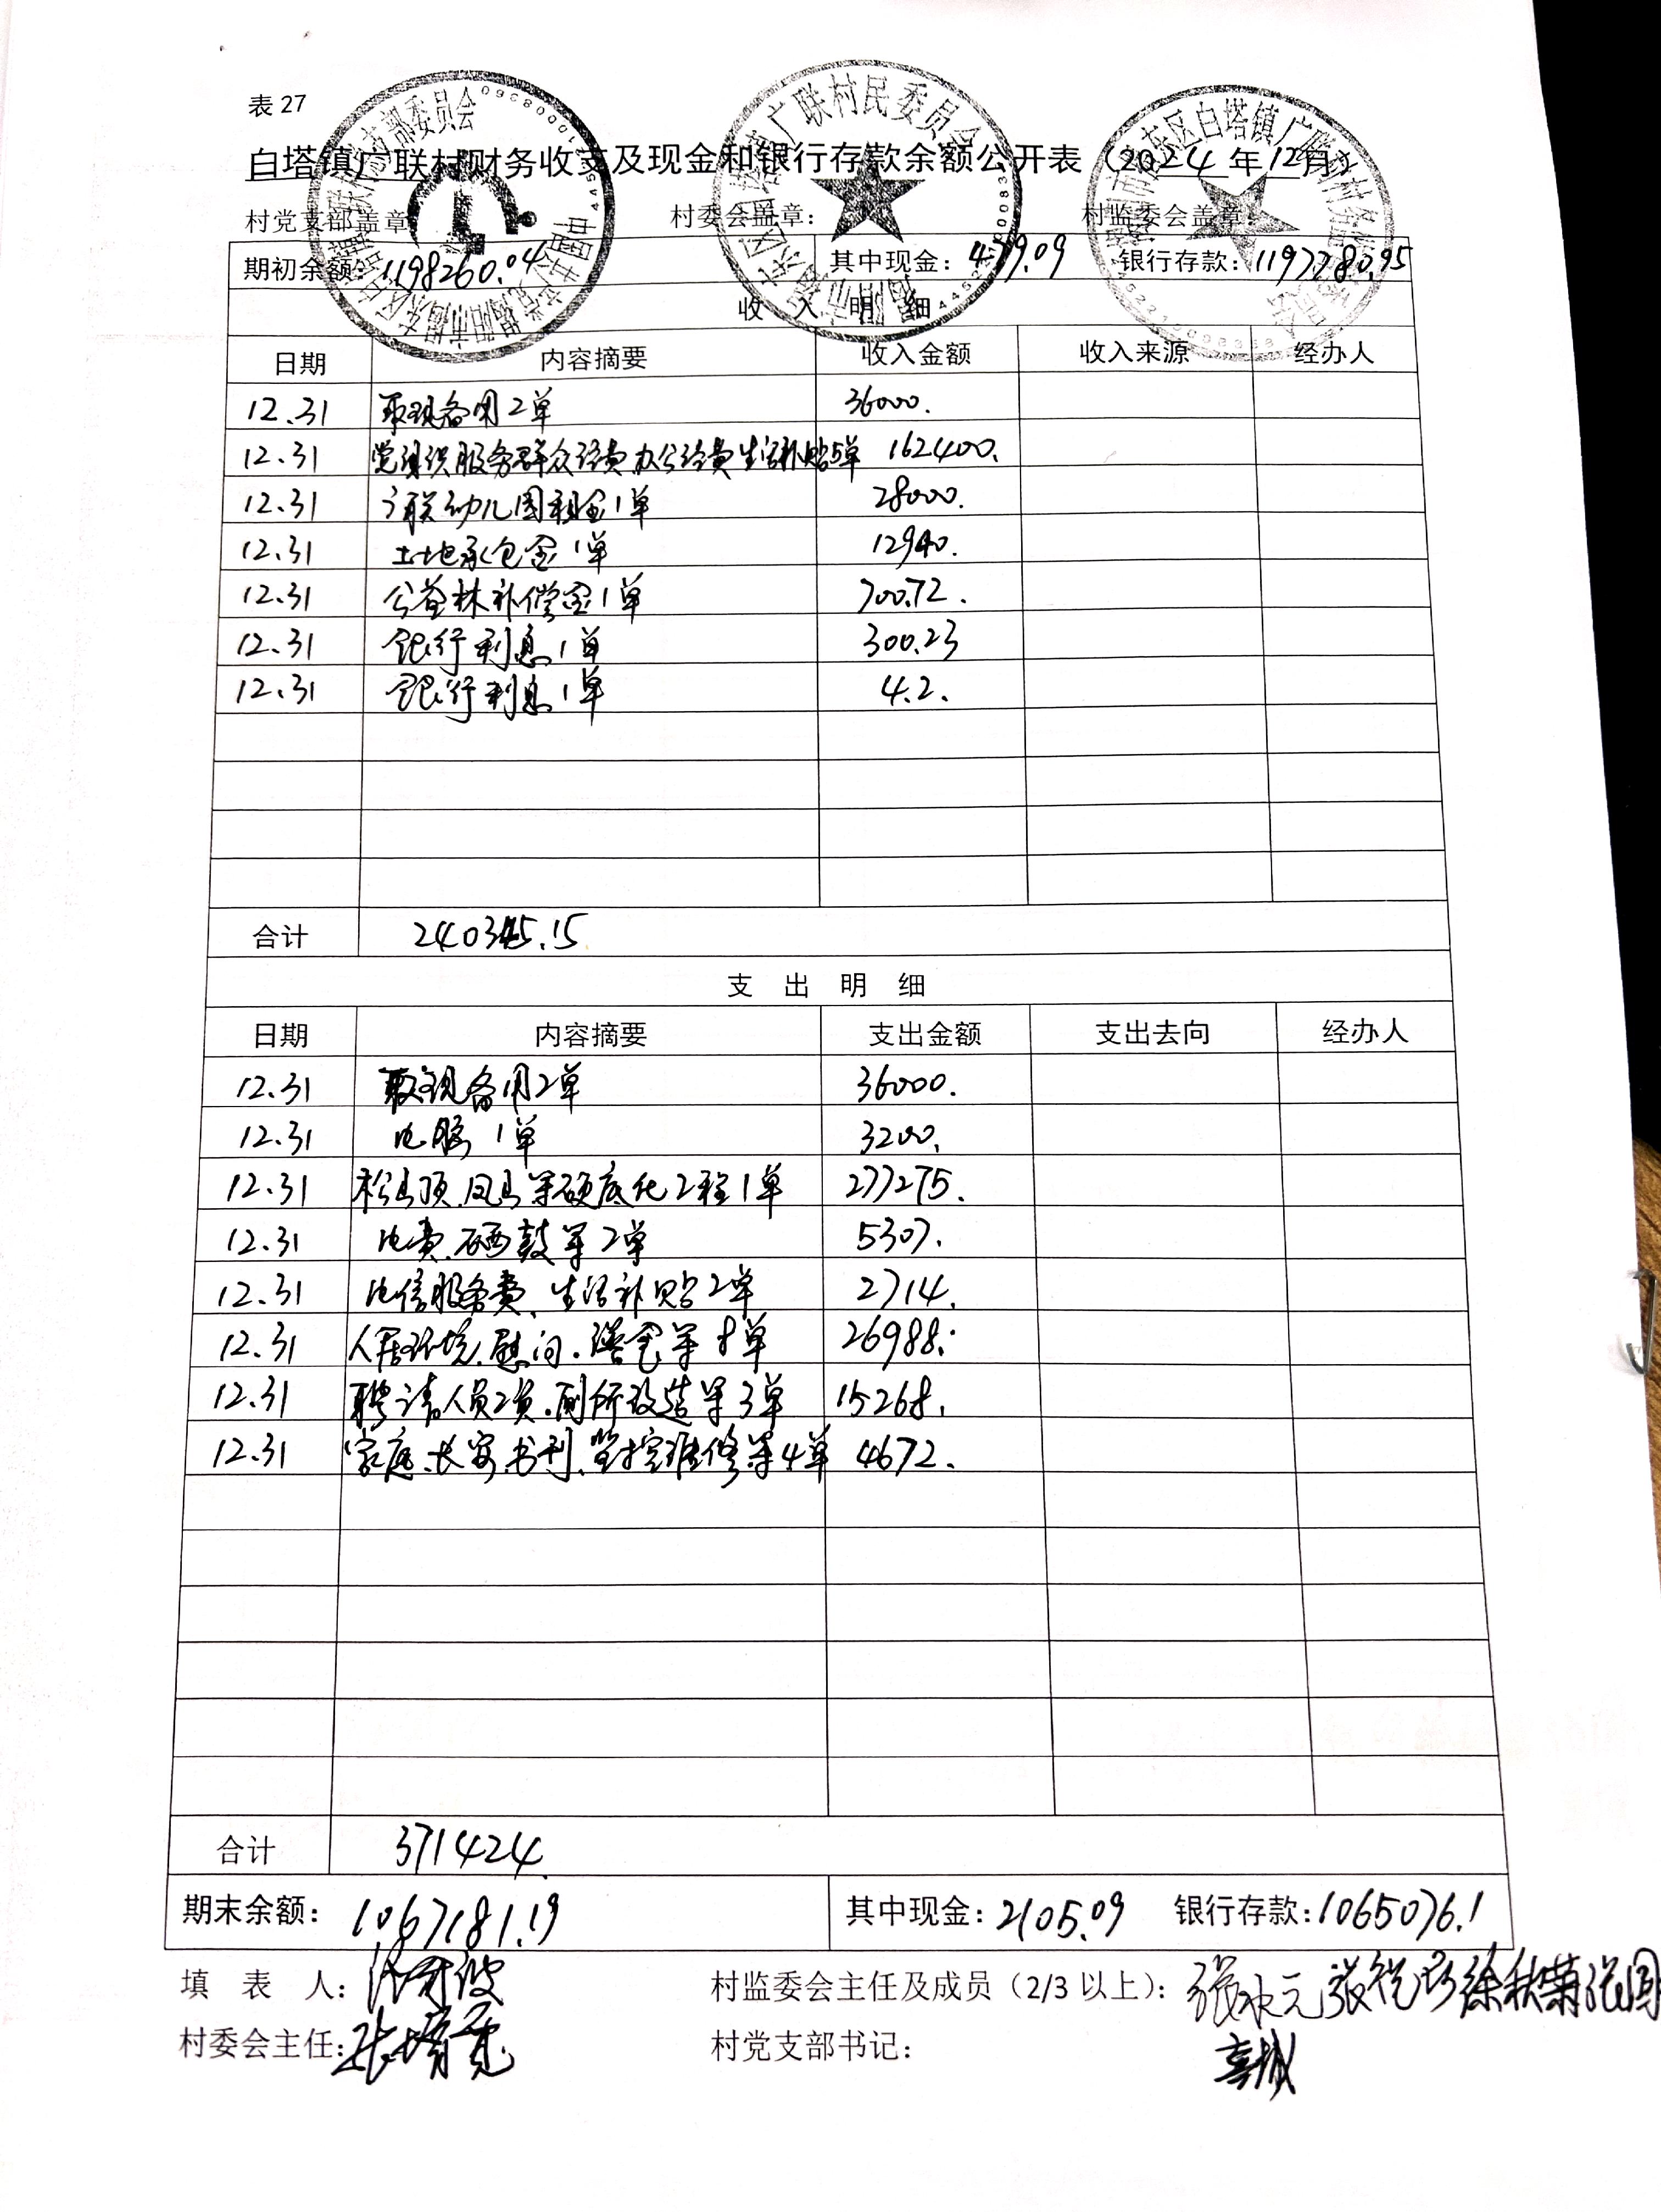 表 27
白塔镇广联村财务收支及现金和银行存款余额公开表（2024 年 12 月）
村党支部盖章 村委会盖章： 村监委会盖章：
期初余额：1198260.04 其中现金：479.09 银行存款：1197780.95
收 入 明 细
日期 内容摘要 收入金额 收入来源 经办人
12.31 取现备用2单 36000.
12.31 党组织服务群众经费.办公经费生活补贴5单 162400.
12.31 广联幼儿园租金1单 28000.
12.31 土地承包金1单 12940.
12.31 公益林补偿金1单 700.72.
12.31 银行利息1单 300.23
12.31 银行利息1单 4.2.
合计 240345.15
支 出 明 细
日期 内容摘要 支出金额 支出去向 经办人
12.31 取现备用2单 36000.
12.31 电脑1单 3200.
12.31 松山顶.凤山等硬底化工程1单 277275.
12.31 电费.硒鼓等2单 5307.
12.31 电信服务费、生活补贴2单 2714.
12.31 人居环境.慰问.等8单 26988.
12.31 聘请人员工资.厕所改造等3单 15268.
12.31 家庭、长安.书刊、监控维修等4单 4672.
合计 371424.
期末余额：1067181.19 其中现金：2105.09 银行存款：1065076.1
填 表 人： 村监委会主任及成员（2/3 以上）：
村委会主任： 村党支部书记：